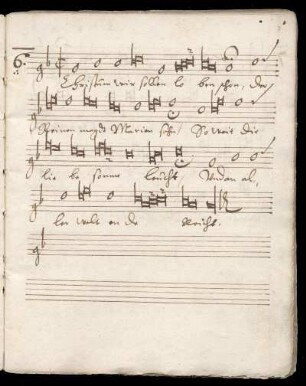 6.
Christum wir sollen lo ben schon, der
Reinen magdt Marien sohn, So weit die
lie be sonne leucht Undan al„
ler welt en de Reicht.